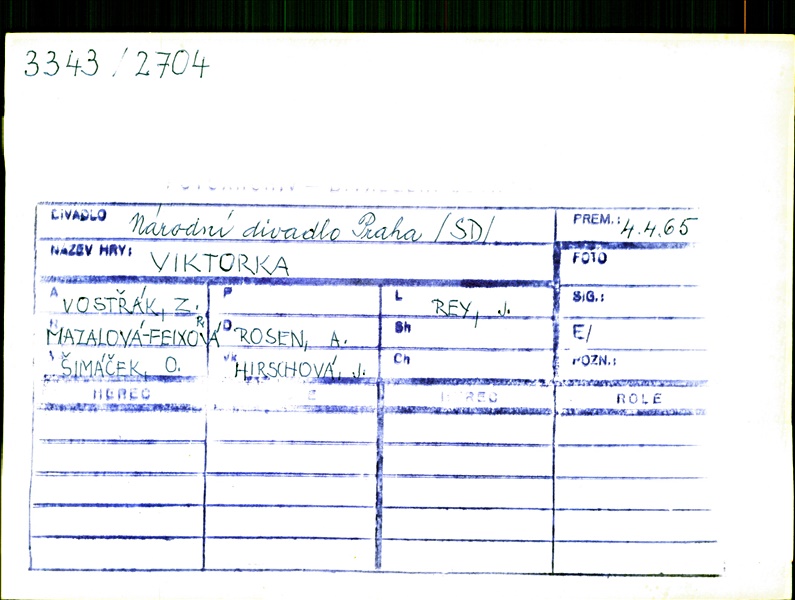 3343 / 2704
DIVADLO Národní divadlo Praha /SD/ PREM.: 4.4.65
NÁZEV HRY: VIKTORKA FOTO
A VOSTŘÁK, Z. P L REY, J. SIG.:
MAZALOVÁ-FEIXOVÁ R. D. ROSEN, A. Sh E/
ŠIMÁČEK, O. HIRSCHOVÁ, J. Ch POZN.:
HEREC HEREC ROLE